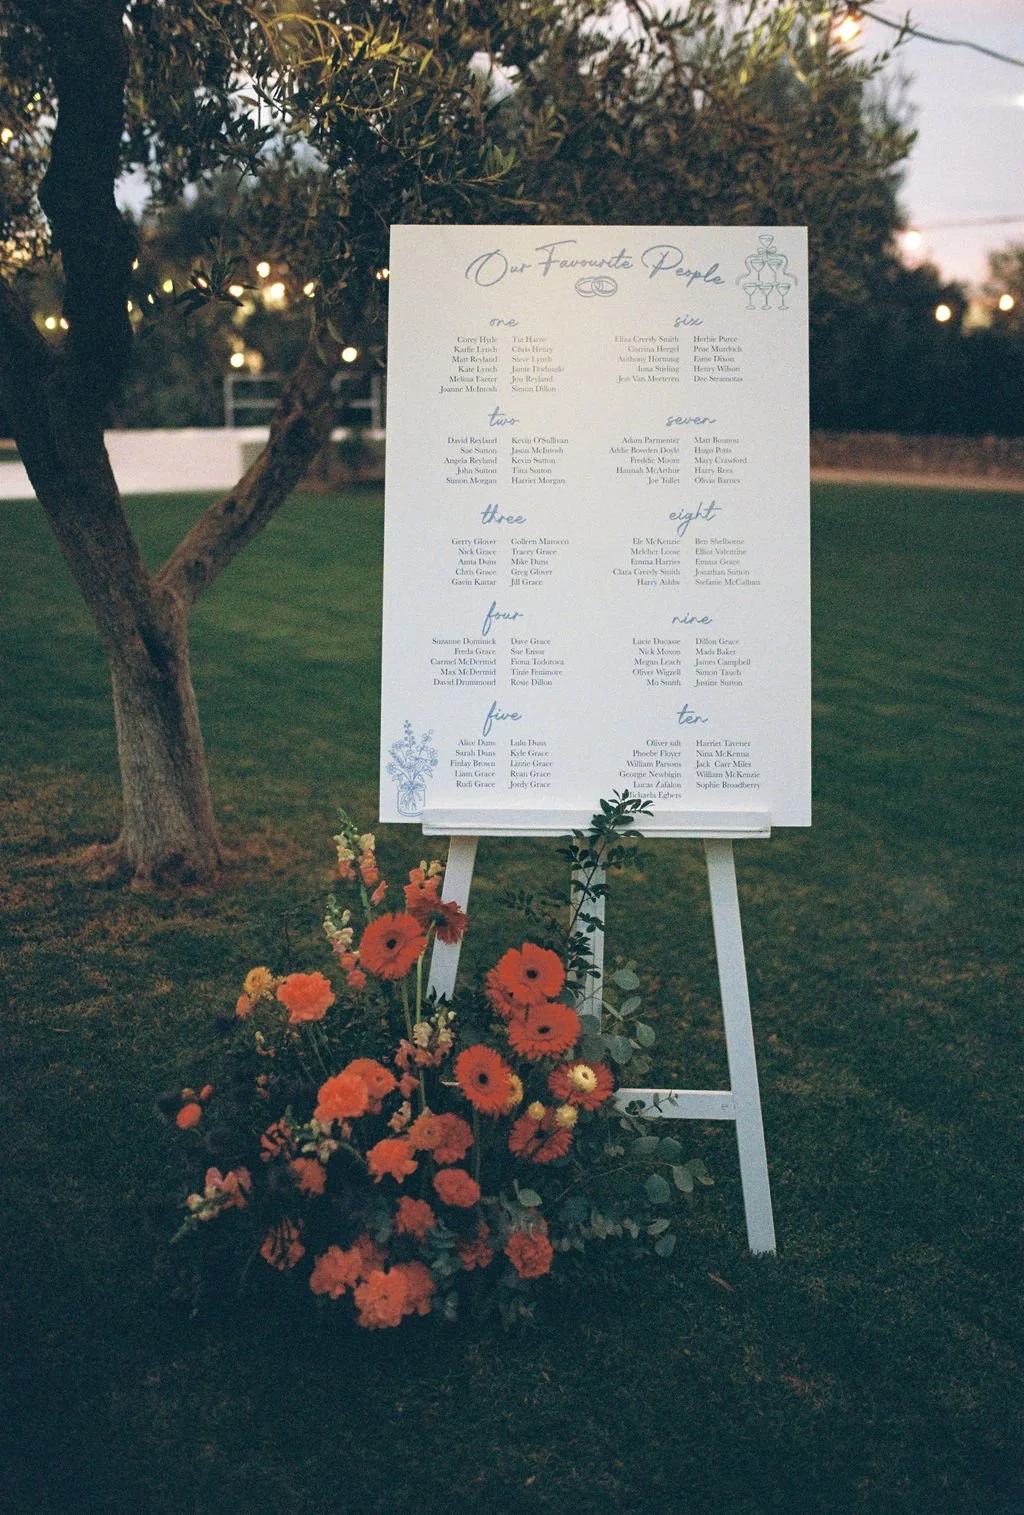 Our Favourite People
one
Corey Hyde Tiz Harre
Karlie Lynch Chris Henry
Matt Reyland Steve Lynch
Kate Lynch Jamie
Melissa Exeter Jen Reyland
Joanne McIntosh Simon Dillon
two
David Reyland Kevin O'Sullivan
Sue Sutton Jason McIntosh
Angela Reyland Kevin Sutton
John Sutton Tina Sutton
Simon Morgan Harriet Morgan
three
Gerry Glover Colleen Marocco
Nick Grace Tracey Grace
Anna Duns Mike Duns
Chris Grace Greg Glover
Gavin Kattar Jill Grace
four
Suzanne Dominick Dave Grace
Freda Grace Sue Ensor
Carmel McDermid Fiona Todorova
Max McDermid Tinie Fenimore
David Drummond Rosie Dillon
five
Alice Duns Lulu Duns
Sarah Duns Kyle Grace
Finlay Brown Lizzie Grace
Liam Grace Ryan Grace
Rudi Grace Jordy Grace
six
Eliza Creedy Smith Herbie Purce
Corrina Hergel Prue Murdoch
Anthony Hornung Esme Dixon
Iona Stirling Henry Wilson
Jen Van Meeteren Dee Stramotas
seven
Adam Parmenter Matt Bounou
Addie Bowden Doyle Hugo Potts
Freddie Moore Mary Crawford
Hannah McArthur Harry Rees
Joe Tollet Olivia Barnes
eight
Ele McKenzie Ben Shelborne
Melcher Loose Elliot Valentine
Emma Harries Emma Grace
Clara Creedy Smith Jonathan Sutton
Harry Ashbs Stefanie McCallum
nine
Lucie Ducasse Dillon Grace
Nick Moxon Mads Baker
Megan Leach James Campbell
Oliver Wigzell Simon Tauch
Mo Smith Justine Sutton
ten
Oliver salt Harriet Tavener
Phoebe Floyer Nina McKenna
William Parsons Jack Carr Miles
Georgie Newbigin William McKenzie
Lucas Zafalon Sophie Broadberry
Michaela Eghers